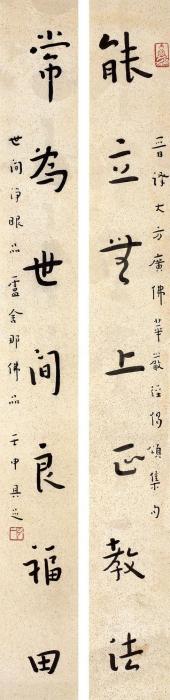 能立無上正教法
晉譯大方廣佛華嚴經偈頌集句
常為世間良福田
世間淨眼品盧舍那佛品 壬申具足